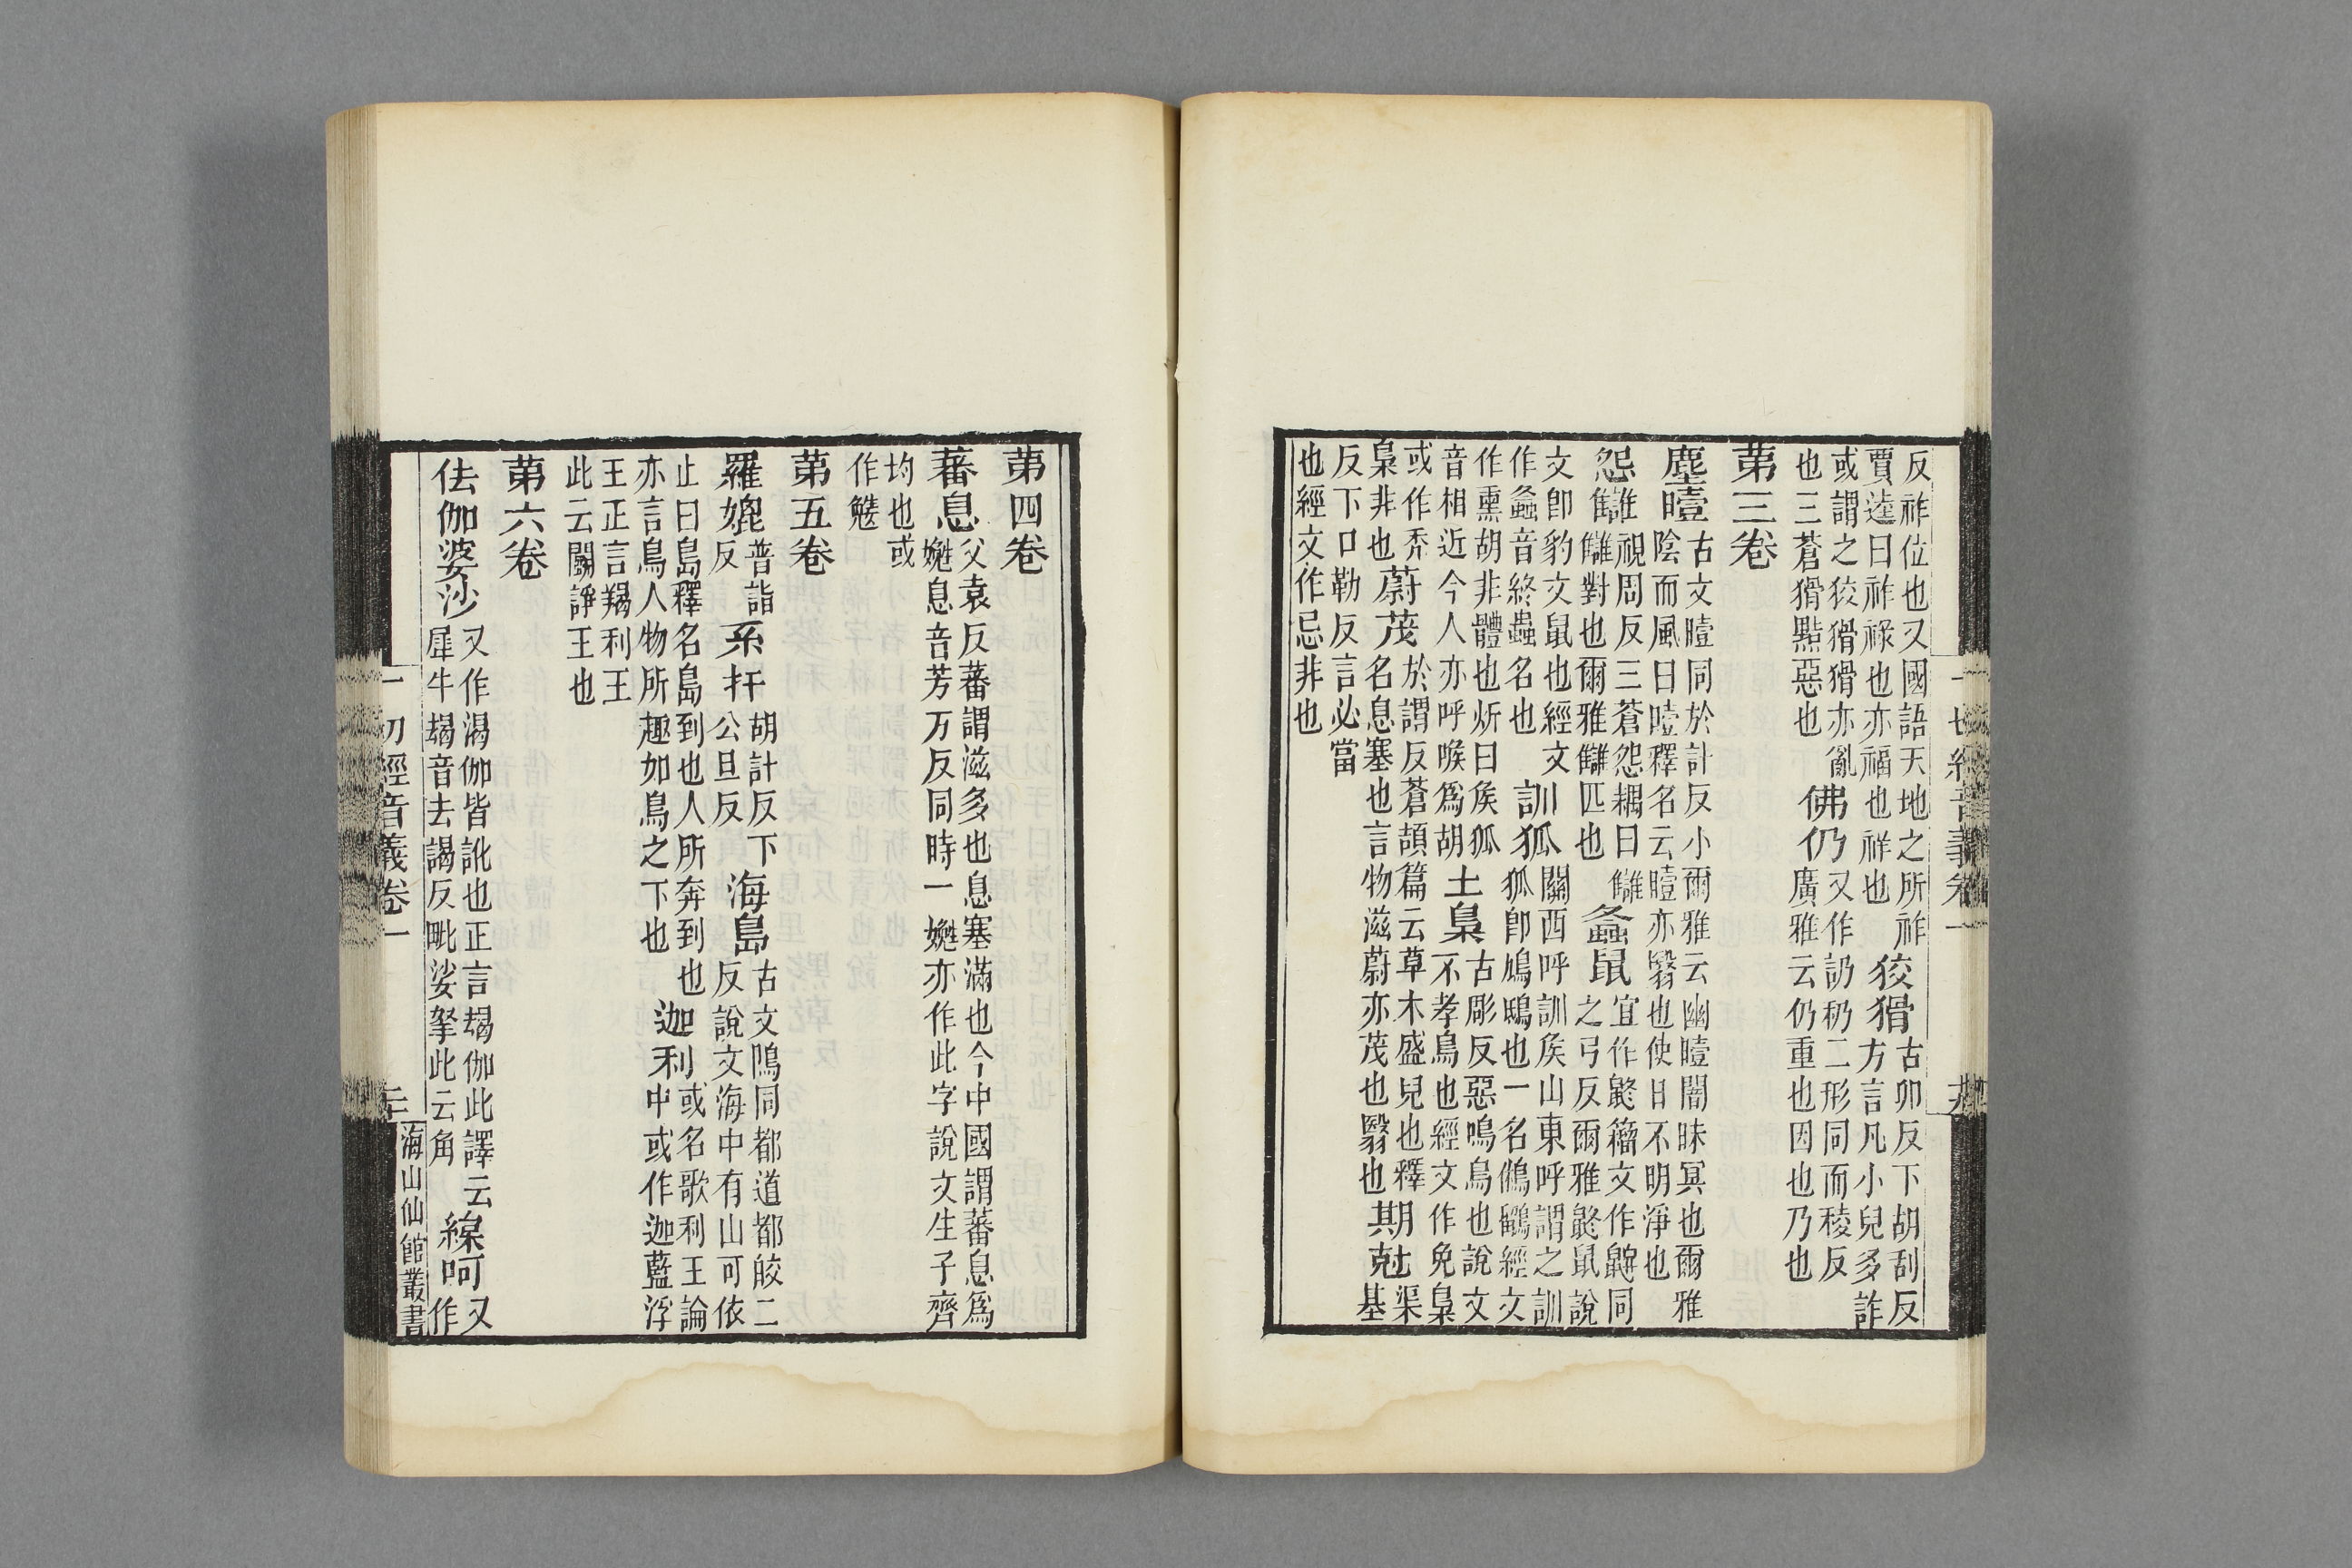 反祚位也又國語天地之所祚
賈逵曰祚祿也亦福也祥也
狡猾
古卯反下胡刮反
方言凡小兒多詐
或謂之狡猾猾亦亂
也三蒼猾黠惡也
佛仍
又作訒礽二形同而稜反
廣雅云仍重也因也乃也
第三卷
塵曀
古文曀同於計反小爾雅云幽曀闇昧冥也爾雅
陰而風曰曀釋名云曀亦翳也使日不明淨也
怨讎
視周反三蒼怨耦曰讎
讎對也爾雅讎匹也
螽鼠
宜作鼨籀文作同
之弓反爾雅鼨鼠說
文卽豹文鼠也經文
作螽音終蟲名也
訓狐
關西呼訓侯山東呼謂之訓
狐卽鳩鴟也一名鵂鶹經文
作熏胡非體也炘曰侯狐
音相近今人亦呼喉爲胡
土梟
古彫反惡鳴鳥也說文
不孝鳥也經文作免梟
或作禿
梟非也
蔚茂
於謂反蒼頡篇云草木盛皃也釋
名息塞也言物滋蔚亦茂也翳也
期尅
渠
基
反下口勒反言必當
也經文作忌非也
一切經音義卷一
第四卷
蕃息
父袁反蕃謂滋多也息塞滿也今中國謂蕃息爲
嬎息音芳万反同時一嬎亦作此字說文生子齊
均也或
作㝃
第五卷
羅娓
普詣
反
系扞
胡計反下
公旦反
海島
古文隝同都道都皎二
反說文海中有山可依
止曰島釋名島到也人所奔到也
亦言鳥人物所趣如鳥之下也
迦利
或名歌利王論
中或作迦藍浮
王正言羯利王
此云鬭諍王也
第六卷
佉伽婆沙
又作渴伽皆訛也正言朅伽此譯云
犀牛朅音去謁反毗娑拏此云角
緱呵
又
作
一切經音義卷一
三
海山仙館叢書